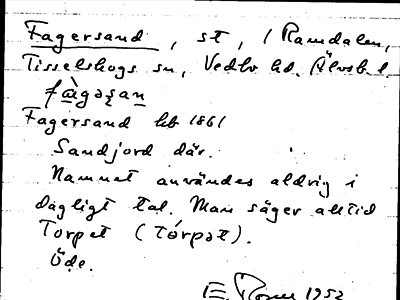 Fagersand, st, i Ramdalen,
Tisselskogs sn, Vedbo hd. Älvsb. l
fàgəʂan
Fagersand hb 1861
Sandjord där.
Namnet användes aldrig i
dagligt tal. Man säger alltid
Torpet (tórpət).
Öde.
E. 1952